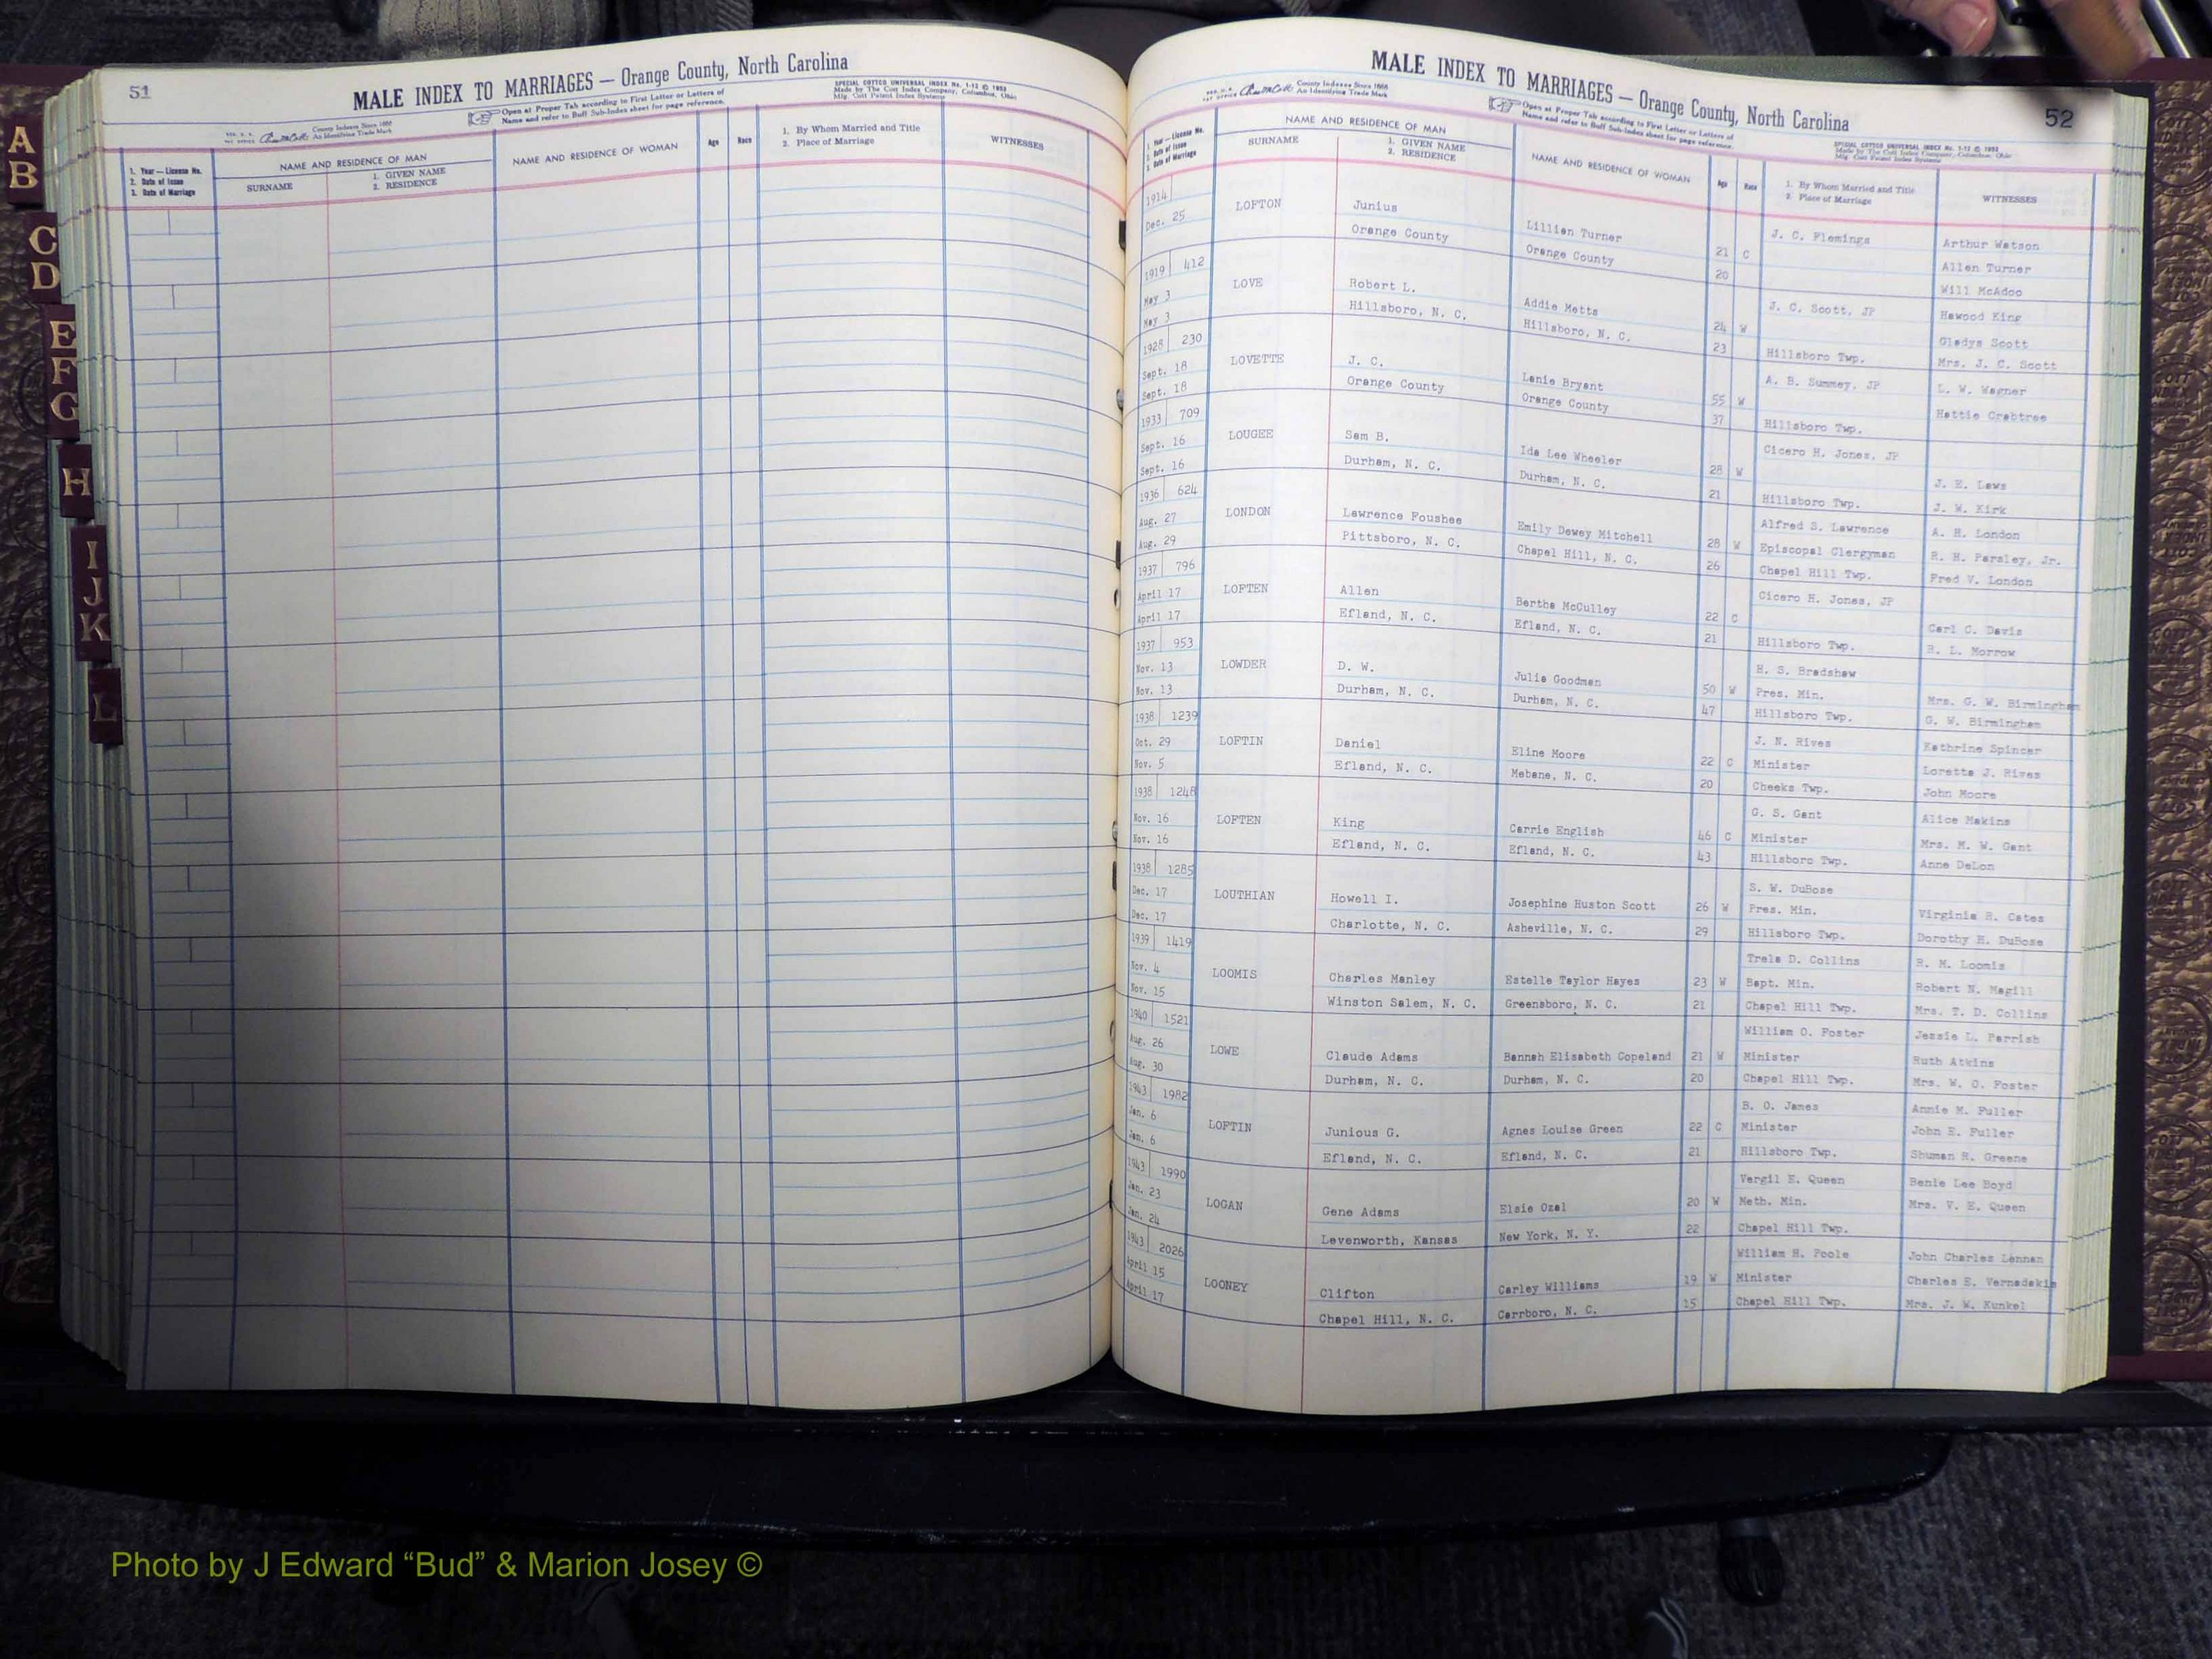 A
B
C
D
E
F
G
H
I
J
K
L
51
MALE INDEX TO MARRIAGES — Orange County, North Carolina
County Indexes Since 1888
An Identifying Trade Mark
Open at Proper Tab according to First Letter or Letters of
Name and refer to Buff Sub-Index sheet for page reference.
SPECIAL COTTCO UNIVERSAL INDEX No. 1-12 © 1953
Made by The Cott Index Company, Columbus, Ohio
Mfg. Cott Patent Index Systems
1. Year — License No.
2. Date of Issue
3. Date of Marriage
NAME AND RESIDENCE OF MAN
SURNAME
1. GIVEN NAME
2. RESIDENCE
NAME AND RESIDENCE OF WOMAN
Age
Race
1. By Whom Married and Title
2. Place of Marriage
WITNESSES
MALE INDEX TO MARRIAGES — Orange County, North Carolina
52
County Indexes Since 1888
An Identifying Trade Mark
Open at Proper Tab according to First Letter or Letters of
Name and refer to Buff Sub-Index sheet for page reference.
SPECIAL COTTCO UNIVERSAL INDEX No. 1-12 © 1953
Made by The Cott Index Company, Columbus, Ohio
Mfg. Cott Patent Index Systems
1. Year — License No.
2. Date of Issue
3. Date of Marriage
NAME AND RESIDENCE OF MAN
SURNAME
1. GIVEN NAME
2. RESIDENCE
NAME AND RESIDENCE OF WOMAN
Age
Race
1. By Whom Married and Title
2. Place of Marriage
WITNESSES
1914 LOFTON Junius Lillian Turner 21 C J. C. Flemings Arthur Watson
Dec. 25 Orange County Orange County 20 Allen Turner
Will McAdoo
1919 412 LOVE Robert L. Addie Metts 24 W J. C. Scott, JP Hawood King
May 3 Hillsboro, N. C. Hillsboro, N. C. 23 Gladys Scott
May 3 Hillsboro Twp. Mrs. J. C. Scott
1928 230 LOVETTE J. C. Lenie Bryant 55 W A. B. Summey, JP L. W. Wagner
Sept. 18 Orange County Orange County 37 Hattie Crabtree
Sept. 18 Hillsboro Twp.
1933 709 LOUGEE Sam B. Ida Lee Wheeler 28 W Cicero H. Jones, JP
Sept. 16 Durham, N. C. Durham, N. C. 21 J. E. Laws
Sept. 16 Hillsboro Twp. J. W. Kirk
1936 624 LONDON Lawrence Foushee Emily Dewey Mitchell 28 W Alfred S. Lawrence A. H. London
Aug. 27 Pittsboro, N. C. Chapel Hill, N. C. 26 Episcopal Clergyman R. H. Parsley, Jr.
Aug. 29 Chapel Hill Twp. Fred V. London
1937 796 LOFTEN Allen Bertha McCulley 22 C Cicero H. Jones, JP
April 17 Efland, N. C. Efland, N. C. 21 Carl C. Davis
April 17 Hillsboro Twp. R. L. Morrow
1937 953 LOWDER D. W. Julia Goodman 50 W H. S. Bradshaw
Nov. 13 Durham, N. C. Durham, N. C. 47 Pres. Min. Mrs. G. W. Birmingham
Nov. 13 Hillsboro Twp. G. W. Birmingham
1938 1239 LOFTIN Daniel Eline Moore 22 C J. N. Rives Kathrine Spincer
Oct. 29 Efland, N. C. Mebane, N. C. 20 Minister Loretta J. Rives
Nov. 5 Cheeks Twp. John Moore
1938 1248 LOFTEN King Carrie English 46 C G. S. Gant Alice Makins
Nov. 16 Efland, N. C. Efland, N. C. 43 Minister Mrs. M. W. Gant
Nov. 16 Hillsboro Twp. Anne DeLon
1938 1285 LOUTHIAN Howell I. Josephine Huston Scott 26 W S. W. DuBose
Dec. 17 Charlotte, N. C. Asheville, N. C. 29 Pres. Min. Virginia H. Cates
Dec. 17 Hillsboro Twp. Dorothy H. DuBose
1939 1419 LOOMIS Charles Manley Estelle Taylor Hayes 23 W Trela D. Collins R. M. Loomis
Nov. 4 Winston Salem, N. C. Greensboro, N. C. 21 Bapt. Min. Robert N. Magill
Nov. 15 Chapel Hill Twp. Mrs. T. D. Collins
1940 1521 LOWE Claude Adams Hannah Elisabeth Copeland 21 W William O. Foster Jessie L. Parrish
Aug. 26 Durham, N. C. Durham, N. C. 20 Minister Ruth Atkins
Aug. 30 Chapel Hill Twp. Mrs. W. O. Foster
1943 1982 LOFTIN Junious G. Agnes Louise Green 22 C B. O. James Annie M. Fuller
Jan. 6 Efland, N. C. Efland, N. C. 21 Minister John E. Fuller
Jan. 6 Hillsboro Twp. Shuman R. Greene
1943 1990 LOGAN Gene Adams Elsie Ozal 20 W Vergil E. Queen Benie Lee Boyd
Jan. 23 Levenworth, Kansas New York, N. Y. 22 Meth. Min. Mrs. V. E. Queen
Jan. 24 Chapel Hill Twp.
1943 2026 LOONEY Clifton Carley Williams 19 W William H. Poole John Charles Lennan
April 15 Chapel Hill, N. C. Carrboro, N. C. 15 Minister Charles E. Vernadakis
April 17 Chapel Hill Twp. Mrs. J. W. Kunkel
Photo by J Edward “Bud” & Marion Josey ©